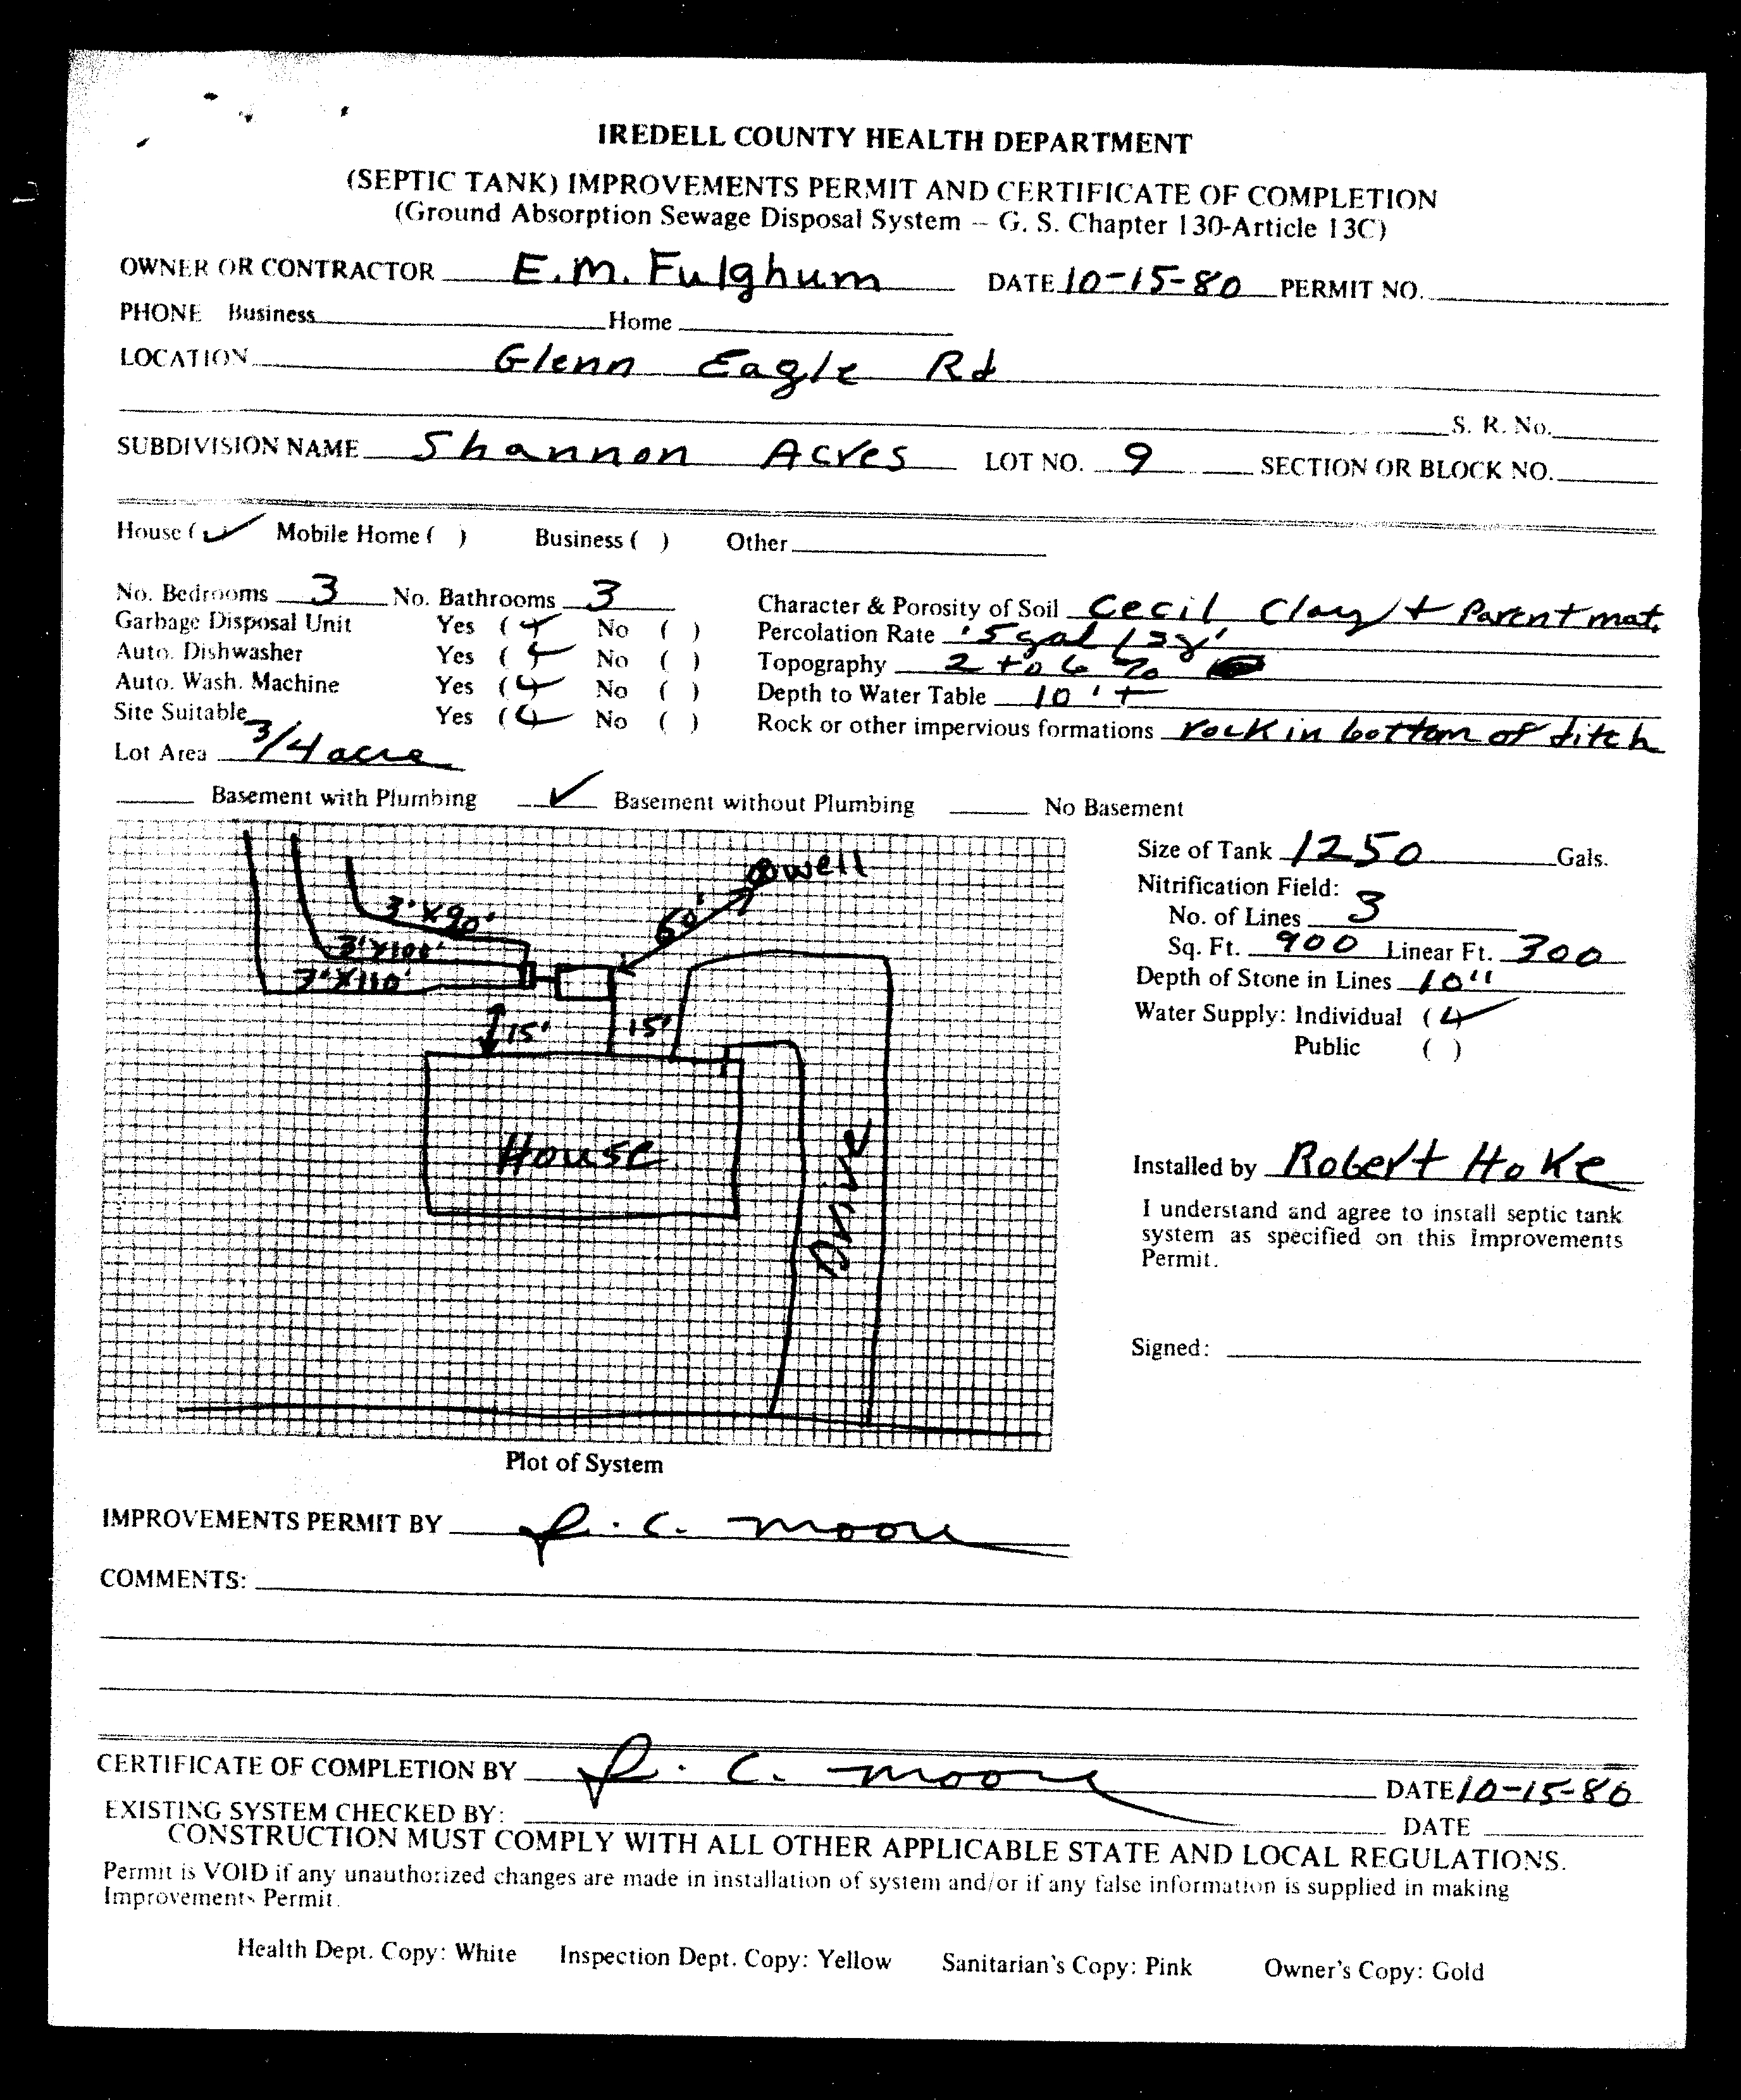 IREDELL COUNTY HEALTH DEPARTMENT
(SEPTIC TANK) IMPROVEMENTS PERMIT AND CERTIFICATE OF COMPLETION
(Ground Absorption Sewage Disposal System – G. S. Chapter 130-Article 13C)
OWNER OR CONTRACTOR E.M. Fulghum DATE 10-15-80 PERMIT NO.
PHONE Business Home
LOCATION Glenn Eagle Rd
S. R. No.
SUBDIVISION NAME Shannon Acres LOT NO. 9 SECTION OR BLOCK NO.
House (✓) Mobile Home ( ) Business ( ) Other
No. Bedrooms 3 No. Bathrooms 3 Character & Porosity of Soil Cecil Clay + Parent mat.
Garbage Disposal Unit Yes (✓) No ( ) Percolation Rate .5 gal /
Auto. Dishwasher Yes (✓) No ( ) Topography 2 to 6 %
Auto. Wash. Machine Yes (✓) No ( ) Depth to Water Table 10'+
Site Suitable Yes (✓) No ( ) Rock or other impervious formations rock in bottom of ditch
Lot Area 3/4 acre
Basement with Plumbing ✓ Basement without Plumbing No Basement
Size of Tank 1250 Gals.
Nitrification Field:
No. of Lines 3
Sq. Ft. 900 Linear Ft. 300
Depth of Stone in Lines 10"
Water Supply: Individual (✓)
Public ( )
well
60'
3'x90'
3'x100'
3'x110'
15' 15'
House
Drive
Installed by Robert Hoke
I understand and agree to install septic tank
system as specified on this Improvements
Permit.
Signed:
Plot of System
IMPROVEMENTS PERMIT BY R. C. Moore
COMMENTS:
CERTIFICATE OF COMPLETION BY R. C. Moore DATE 10-15-80
EXISTING SYSTEM CHECKED BY: DATE
CONSTRUCTION MUST COMPLY WITH ALL OTHER APPLICABLE STATE AND LOCAL REGULATIONS.
Permit is VOID if any unauthorized changes are made in installation of system and/or if any false information is supplied in making
Improvements Permit.
Health Dept. Copy: White Inspection Dept. Copy: Yellow Sanitarian's Copy: Pink Owner's Copy: Gold